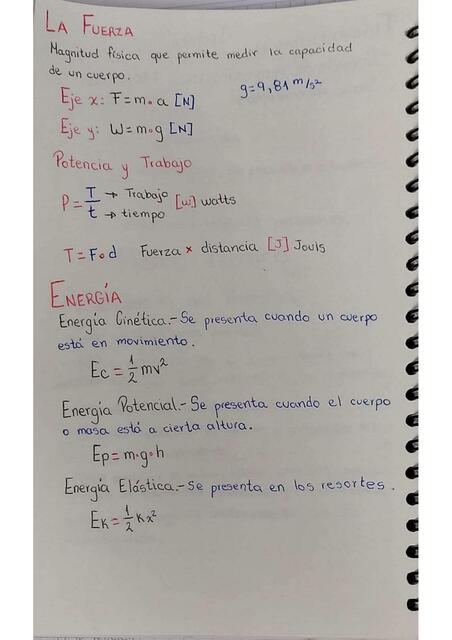 LA FUERZA
Magnitud física que permite medir la capacidad
de un cuerpo.
Eje x: F=m•a [N]
g=9,81 m/s²
Eje y: W=m•g [N]
Potencia y Trabajo
P= T/t → Trabajo [w] watts
→ tiempo
T=F•d Fuerza × distancia [J] Jouls
ENERGÍA
Energía Cinética.-Se presenta cuando un cuerpo
está en movimiento.
Ec = 1/2 mv²
Energía Potencial.-Se presenta cuando el cuerpo
o masa está a cierta altura.
Ep=m•g•h
Energía Elástica.-Se presenta en los resortes.
Ek=1/2 Kx²